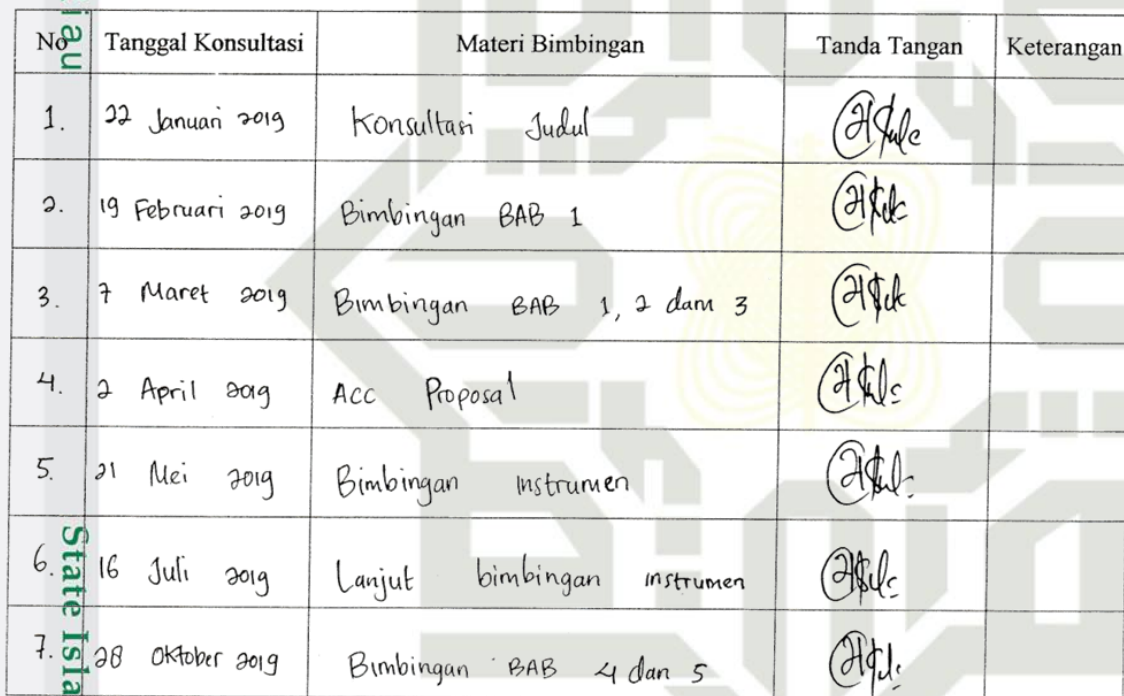 iau
No Tanggal Konsultasi Materi Bimbingan Tanda Tangan Keterangan
1. 22 Januari 2019 Konsultasi Judul
2. 19 Februari 2019 Bimbingan BAB 1
3. 7 Maret 2019 Bimbingan BAB 1, 2 dam 3
4. 2 April 2019 Acc Proposal
5. 21 Mei 2019 Bimbingan Instrumen
6. 16 Juli 2019 Lanjut bimbingan instrumen
7. 28 Oktober 2019 Bimbingan BAB 4 dan 5
State Isla